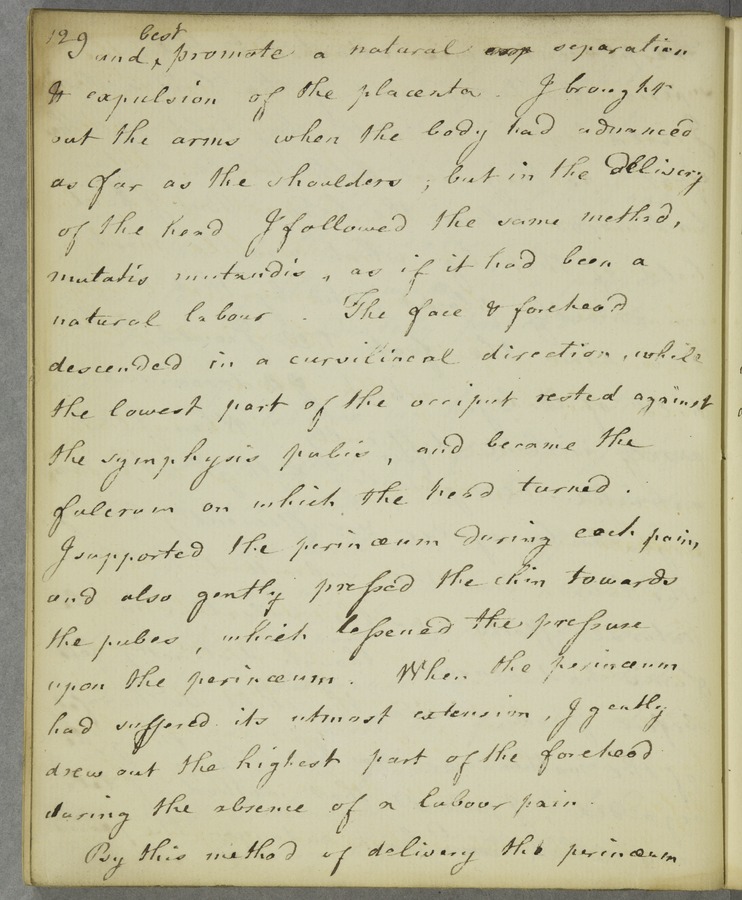 129
best
and ‸ promote a natural exp separation
& expulsion of the placenta. I brought
out the arms when the body had advanced
as far as the shoulders; but in the delivery
of the head I followed the same method,
mutatis mutandis, as if it had been a
natural labour. The face & forehead
descended in a curvilineal direction, while
the lowest part of the occiput rested against
the symphysis pubis, and became the
fulcrum on which the head turned.
I supported the perinæum during each pain,
and also gently preſsed the chin towards
the pubes, which leſsened the preſsure
upon the perinæum. When the perinæum
had suffered its utmost extension, I gently
drew out the highest part of the forehead
during the absence of a labour pain.
By this method of delivery the perinæum